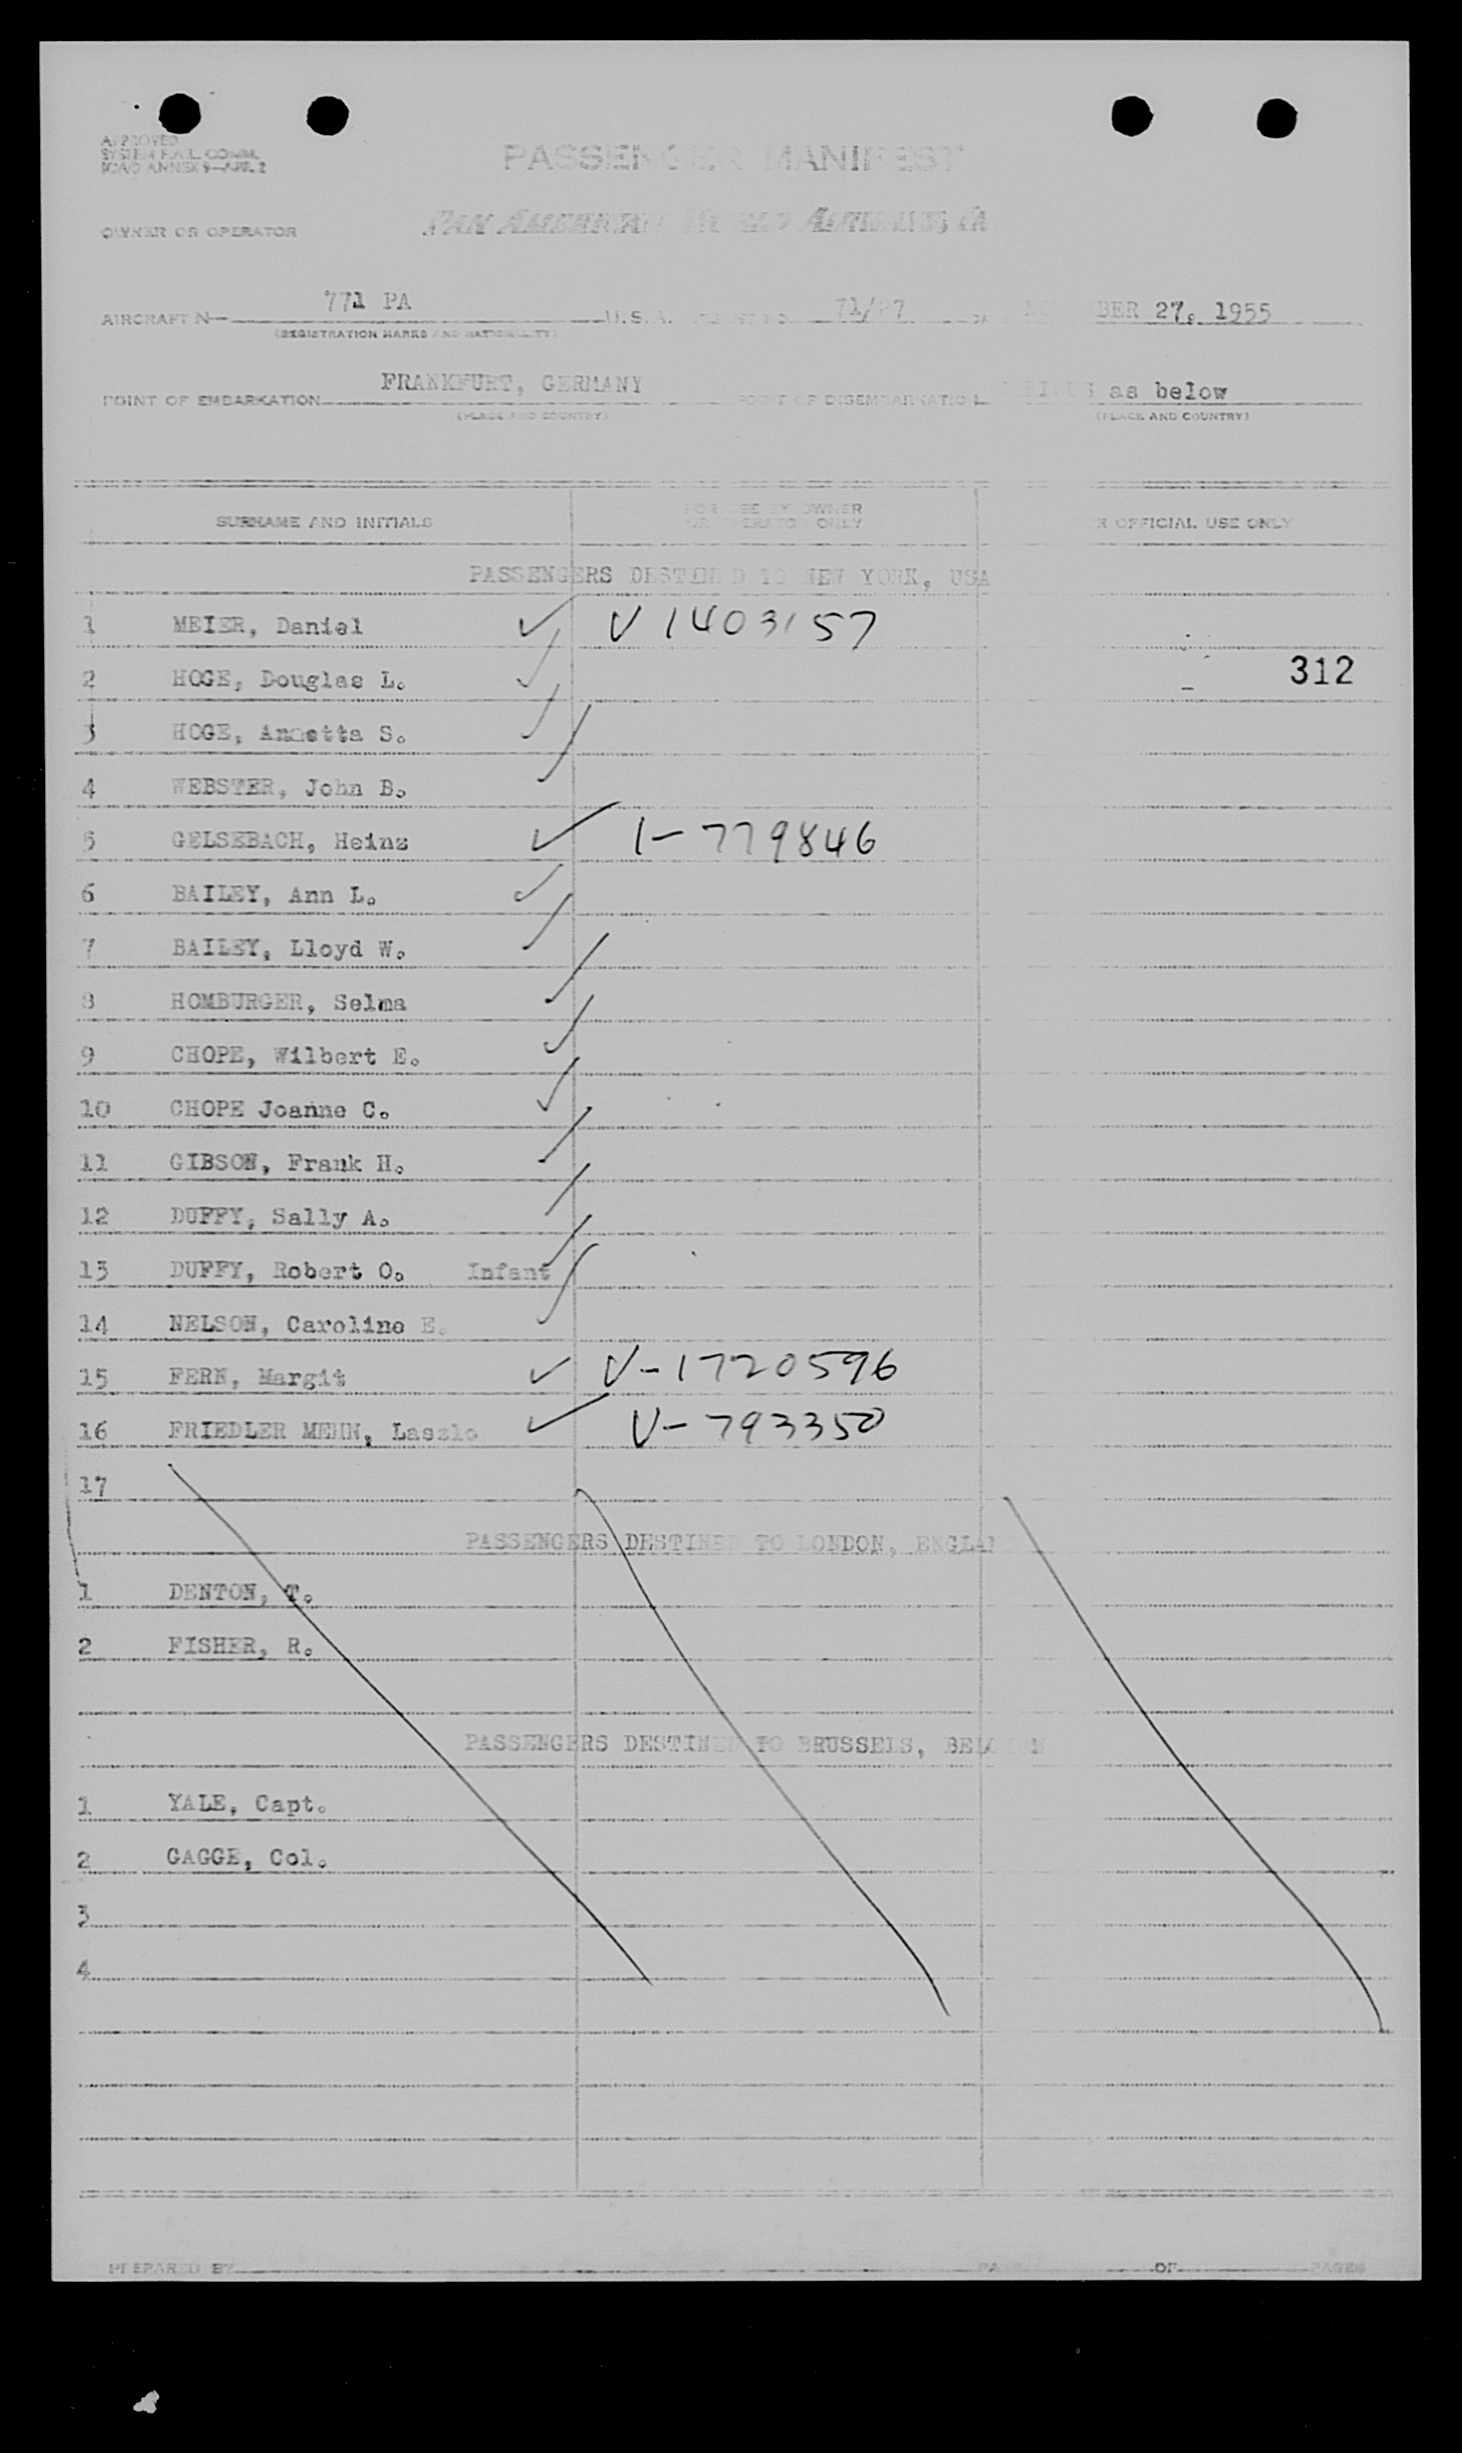 APPROVED
SYSTEM F.A.L. COMM.
ICAO ANNEX 9—APP. 2
PASSENGER MANIFEST
OWNER OR OPERATOR
PAN AMERICAN WORLD AIRWAYS,
AIRCRAFT N— 771 PA U.S.A. 71/27 NOVEMBER 27, 1955
(REGISTRATION MARKS AND NATIONALITY)
POINT OF EMBARKATION FRANKFURT, GERMANY POINT OF DISEMBARKATION as below
(PLACE AND COUNTRY) (PLACE AND COUNTRY)
SURNAME AND INITIALS FOR USE BY OWNER OR OPERATOR ONLY R OFFICIAL USE ONLY
PASSENGERS DESTINED TO NEW YORK, USA
1 MEIER, Daniel ✓ V 1403157
2 HOGE, Douglas L. ✓ 312
3 HOGE, Annetta S. ✓
4 WEBSTER, John B. ✓
5 GELSEBACH, Heinz ✓ 1-779846
6 BAILEY, Ann L. ✓
7 BAILEY, Lloyd W. ✓
8 HOMBURGER, Selma ✓
9 CHOPE, Wilbert E. ✓
10 CHOPE Joanne C. ✓
11 GIBSON, Frank H. ✓
12 DUFFY, Sally A. ✓
13 DUFFY, Robert O. Infant ✓
14 NELSON, Caroline E. ✓
15 FERN, Margit ✓ V-1720596
16 FRIEDLER MEHN, Laszlo ✓ V-793350
17
PASSENGERS DESTINED TO LONDON, ENGLAN
1 DENTON, T.
2 FISHER, R.
PASSENGERS DESTINED TO BRUSSELS, BELGIUM
1 YALE, Capt.
2 GAGGE, Col.
3
4
PREPARED BY PA OF PAGES